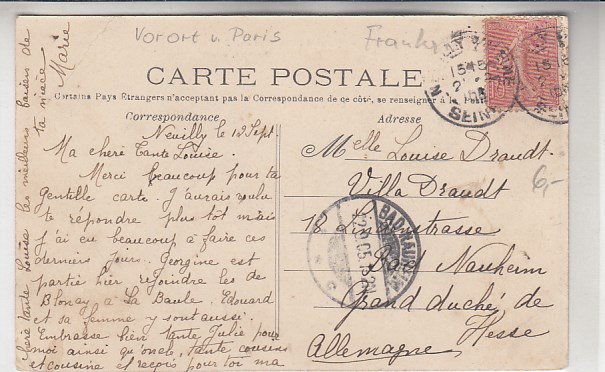 Vorort u Paris
CARTE POSTALE
Certains Pays Étrangers n'acceptant pas la Correspondance de ce côté, se renseigner à la Poste
Correspondance
Adresse
Neuilly le 12 Sept.
Ma chère Tante Louise.
Merci beaucoup pour ta
gentille carte. J'aurais voulu
te répondre plus tôt mais
j'ai eu beaucoup à faire ces
derniers jours. Georgine est
partie hier rejoindre les de
Blonay à La Baule. Edouard
et sa femme y sont aussi.
Embrasse bien tante Julie pour
moi ainsi qu'oncle, tante cousins
et cousine et reçois pour toi ma
chère tante Louise les meilleurs baisers de
ta nièce
Marie
Melle Louise Draudt.
Villa Draudt
18
Bad Nauheim
Grand duché de
Hesse
Allemagne
6,-
SEINE
BAD NAUHEIM